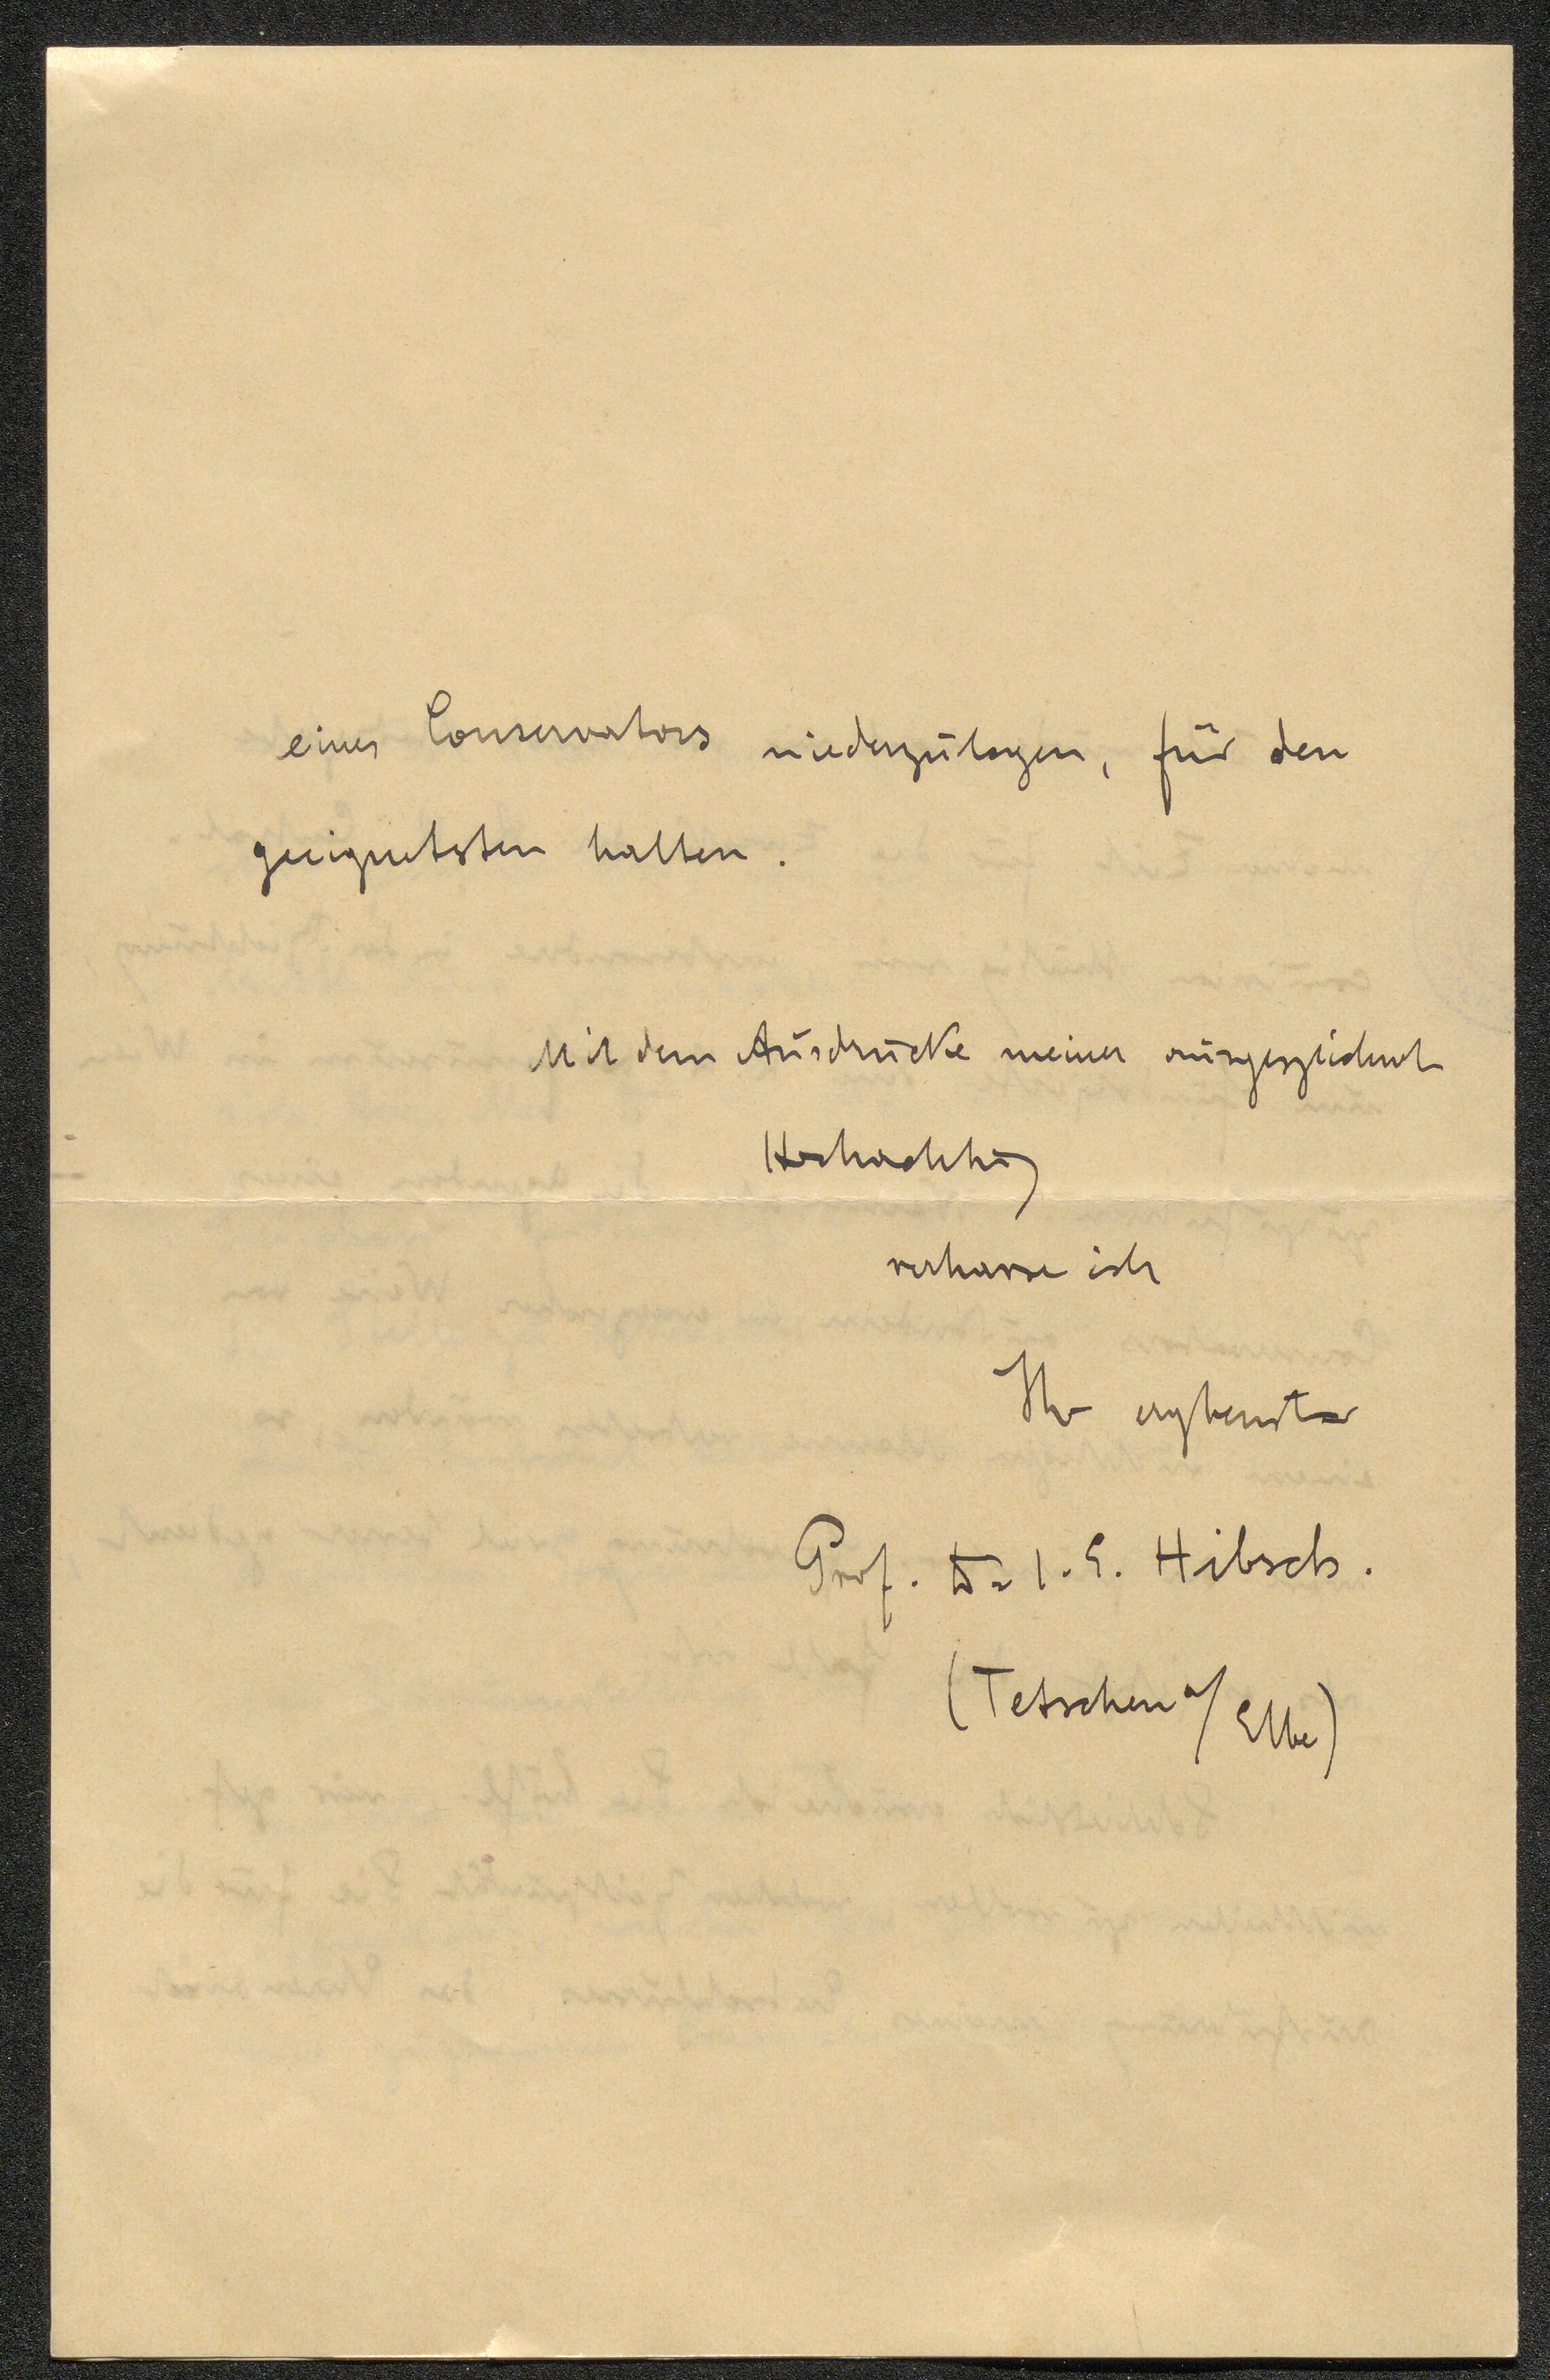 eines Conservators niederzulegen, für den
geeignetsten halten.
Mit dem Ausdrucke meiner ausgezeichnet
Hochachtung
verharre ich
Ihr ergebenster
Prof. Dr J. E. Hibsch.
(Tetschen a/Elbe)